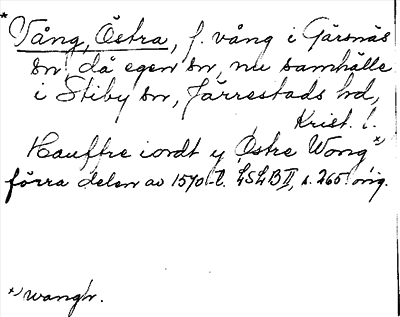 * Vång, Östra, f. vång i Gärsnäs
sn: då egen sn, nu samhälle
i Stiby sn, Järrestads hd,
Krist. l.
Hauffre iordt y Østre Wong *)
förra delen av 1570-t. LSLB II, s. 265. orig.
*) wangh.